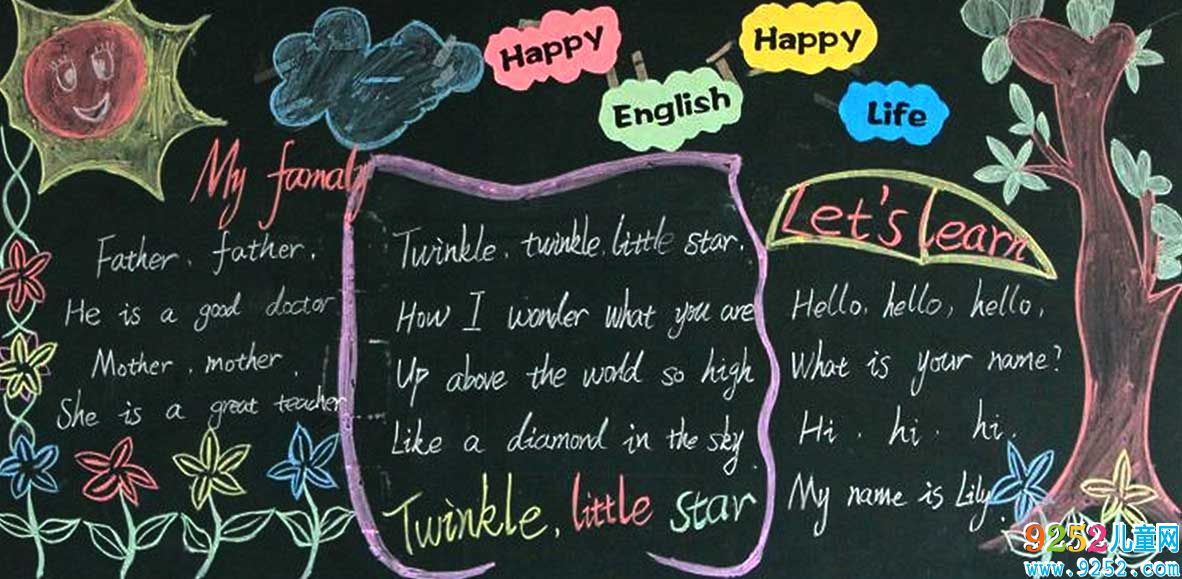 Happy
English
Happy
Life
My famaly
Father, father,
He is a good doctor
Mother, mother,
She is a great teacher
Twinkle, twinkle, little star,
How I wonder what you are
Up above the world so high
Like a diamond in the sky
Twinkle, little star
Let's learn
Hello, hello, hello,
What is your name?
Hi, hi, hi,
My name is Lily.
9252儿童网
www.9252.com